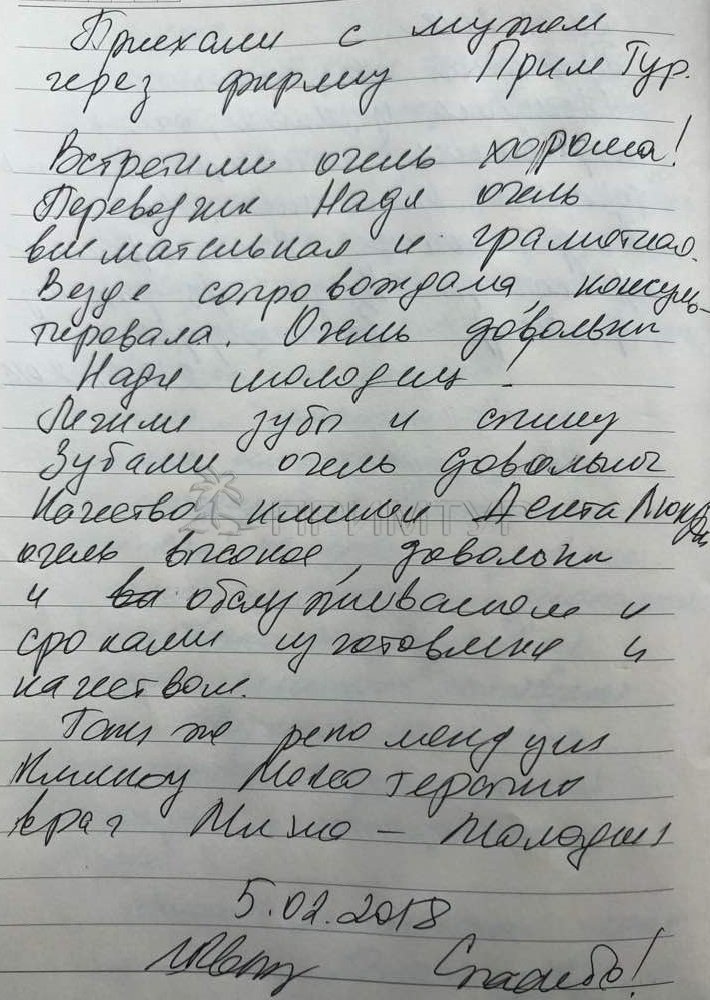 Приехали с мужем
через фирму Прим Тур.
Встретили очень хорошо!
Переводчик Надя очень
внимательная и грамотная.
Везде сопровождала, консуль-
тировала. Очень довольны
Надя молодец!
Лечили зубы и спину
Зубами очень довольны
ПРИМТУР
Качество клиники Дента Люкс
очень высокое, довольны
и обслуживанием и
сроками изготовления и
качеством.
Так же рекомендуем
клинику терапии
врач Мишо - молодец
5.02.2018
Спасибо!